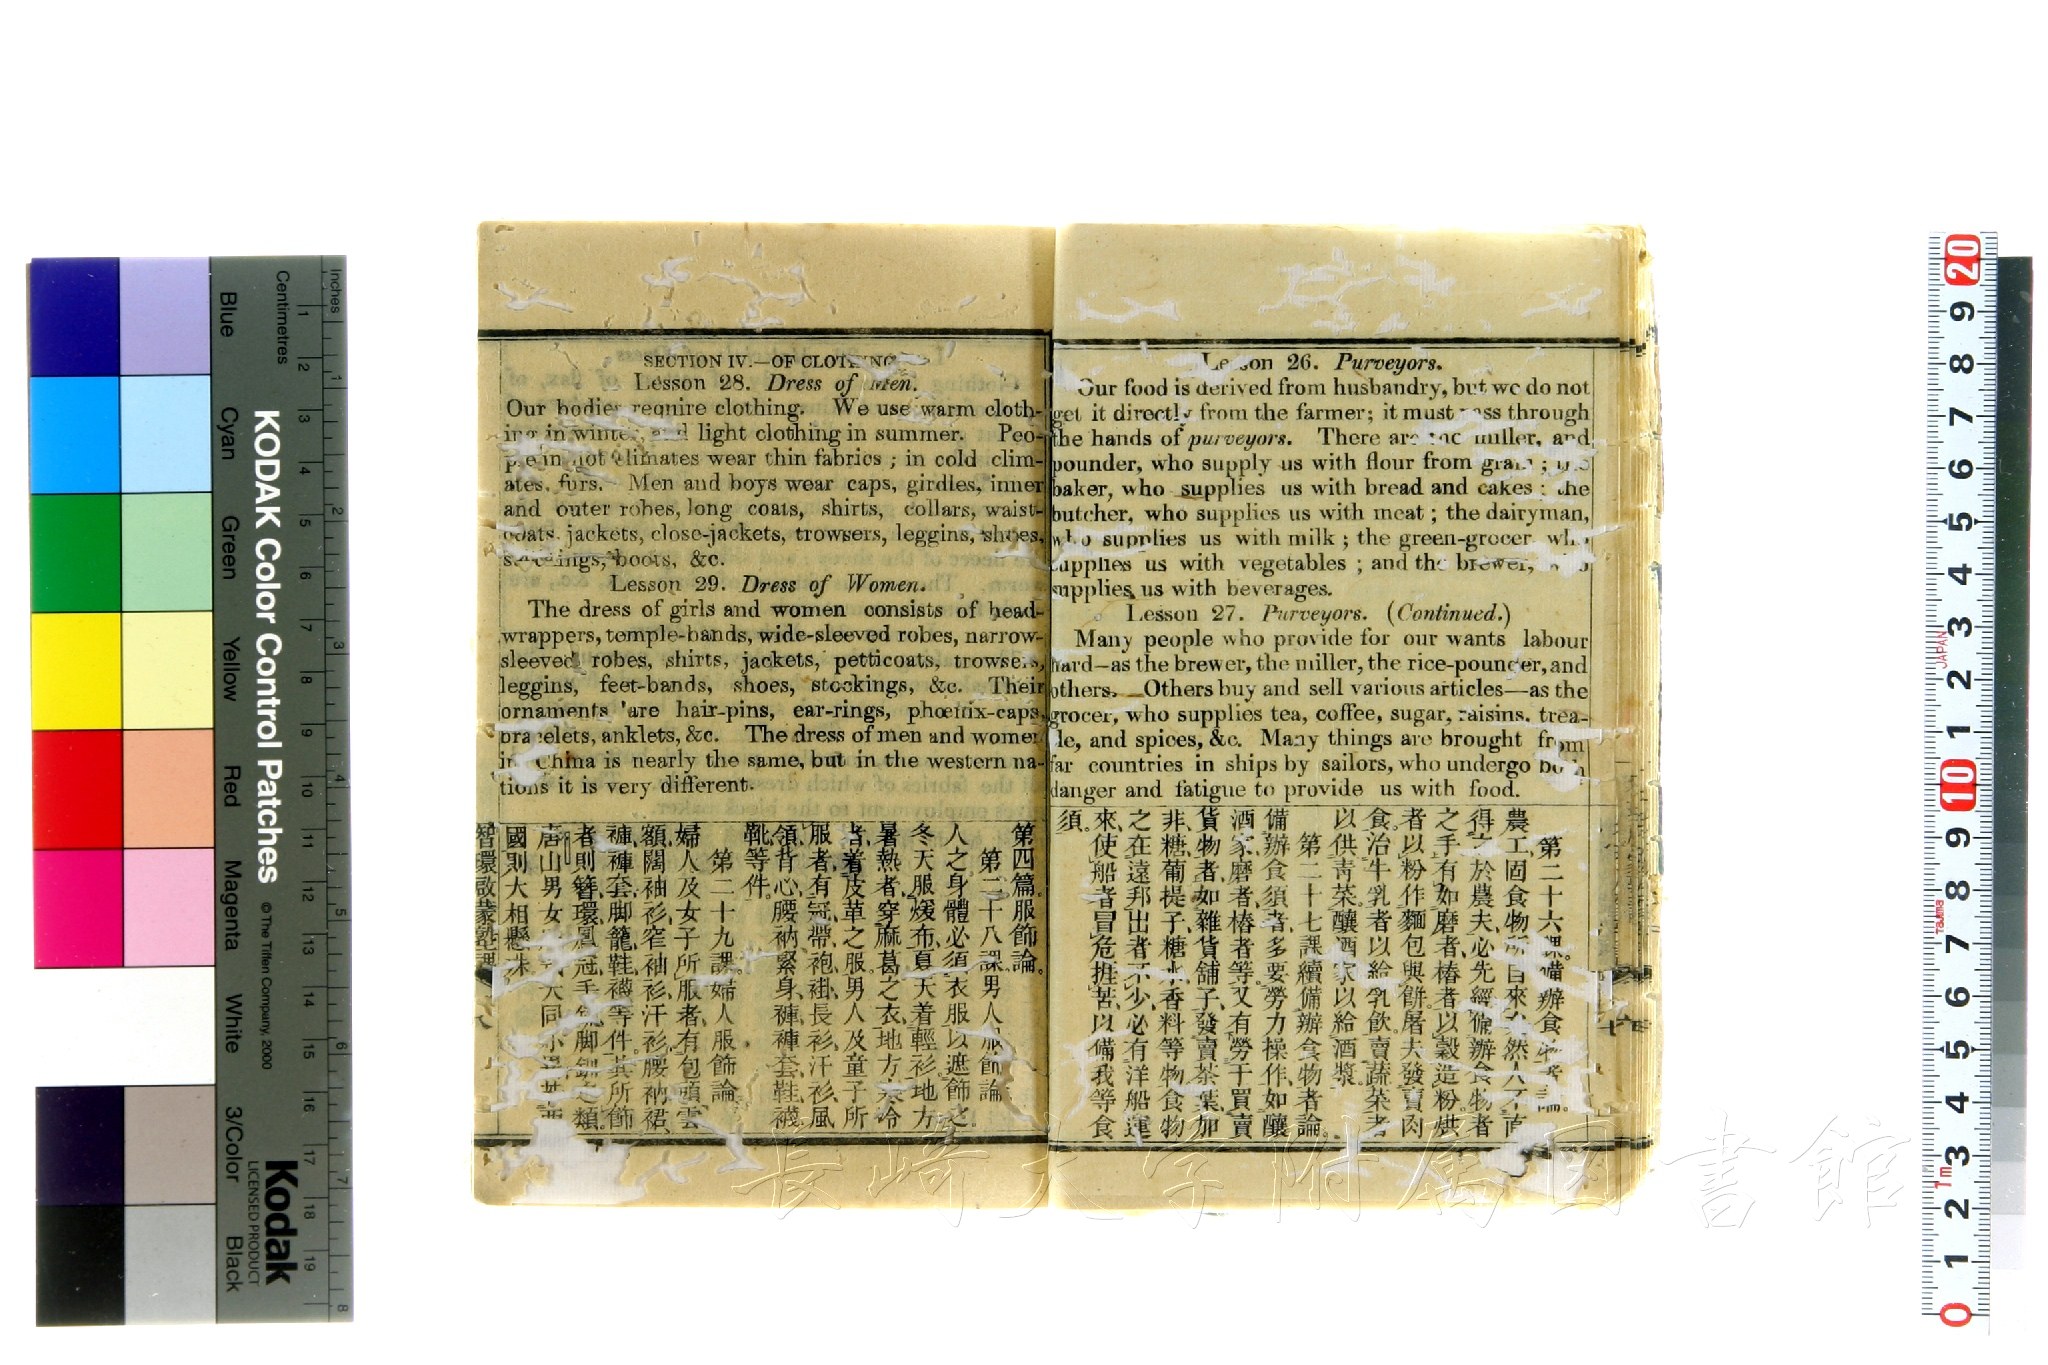 Lesson 26. Purveyors.
Our food is derived from husbandry, but we do not
get it directly from the farmer; it must pass through
the hands of purveyors. There are the miller, and
pounder, who supply us with flour from grain; the
baker, who supplies us with bread and cakes; the
butcher, who supplies us with meat; the dairyman,
who supplies us with milk; the green-grocer who
supplies us with vegetables; and the brewer, who
supplies us with beverages.
Lesson 27. Purveyors. (Continued.)
Many people who provide for our wants labour
hard—as the brewer, the miller, the rice-pounder, and
others. Others buy and sell various articles—as the
grocer, who supplies tea, coffee, sugar, raisins, trea-
cle, and spices, &c. Many things are brought from
far countries in ships by sailors, who undergo both
danger and fatigue to provide us with food.
第二十六課備辦食物者論。
農工固食物所自來、然人不直
得之於農夫、必先經備辦食物者
之手、有如磨者、樁者、以穀造粉、烘
者以粉作麵包與餅、屠夫發賣肉
食、治牛乳者以給乳飲、賣蔬菜者
以供靑菜、釀酒家以給酒漿。
第二十七課續備辦食物者論。
備辦食須者、多要勞力操作、如釀
酒家、磨者、樁者等、又有勞于買賣
貨物者、如雜貨舖子、發賣茶葉、加
非、糖、葡提子、糖水、香料等物、食物
之在遠邦出者不少、必有洋船運
來、使船者冒危捱苦、以備我等食
須。
SECTION IV.—OF CLOTHING
Lesson 28. Dress of Men.
Our bodies require clothing. We use warm cloth-
ing in winter, and light clothing in summer. Peo-
ple in hot climates wear thin fabrics; in cold clim-
ates, furs. Men and boys wear caps, girdles, inner
and outer robes, long coats, shirts, collars, waist-
coats, jackets, close-jackets, trowsers, leggins, shoes,
stockings, boots, &c.
Lesson 29. Dress of Women.
The dress of girls and women consists of head-
wrappers, temple-bands, wide-sleeved robes, narrow-
sleeved robes, shirts, jackets, petticoats, trowsers,
leggins, feet-bands, shoes, stockings, &c. Their
ornaments are hair-pins, ear-rings, phœnix-caps,
bracelets, anklets, &c. The dress of men and women
in China is nearly the same, but in the western na-
tions it is very different.
第四篇。服飾論。
第二十八課。男人服飾論
人之身體必須衣服以遮飾之、
冬天服煖布、夏天着輕衫、地方
暑熱者、穿麻葛之衣、地方寒冷
者、着皮革之服、男人及童子所
服者、有冠、帶、袍、褂、長衫、汗衫、風
領、背心、腰衲、緊身、褲、褲套、鞋、襪、
靴等件。
第二十九課。婦人服飾論
婦人及女子所服者、有包頭、雲
額、闊袖衫、窄袖衫、汗衫、腰衲、裙、
褲、褲套、脚籠、鞋、襪等件、其所飾
者則簪、環、鳳冠、手鈪、脚鈪之類。
唐山男女 大同小異、
國則大相懸殊。
智環啟蒙塾課
KODAK Color Control Patches
©The Tiffen Company, 2000
Kodak
LICENSED PRODUCT
Inches
Centimetres
Blue
Cyan
Green
Yellow
Red
Magenta
White
3/Color
Black
1 2 3 4 5 6 7 8 9 10 11 12 13 14 15 16 17 18 19
1 2 3 4 5 6 7 8
20 9 8 7 6 5 4 3 2 1 10 9 8 7 6 5 4 3 2 1 0
JAPAN
Tajima
1m
長崎大学附属図書館